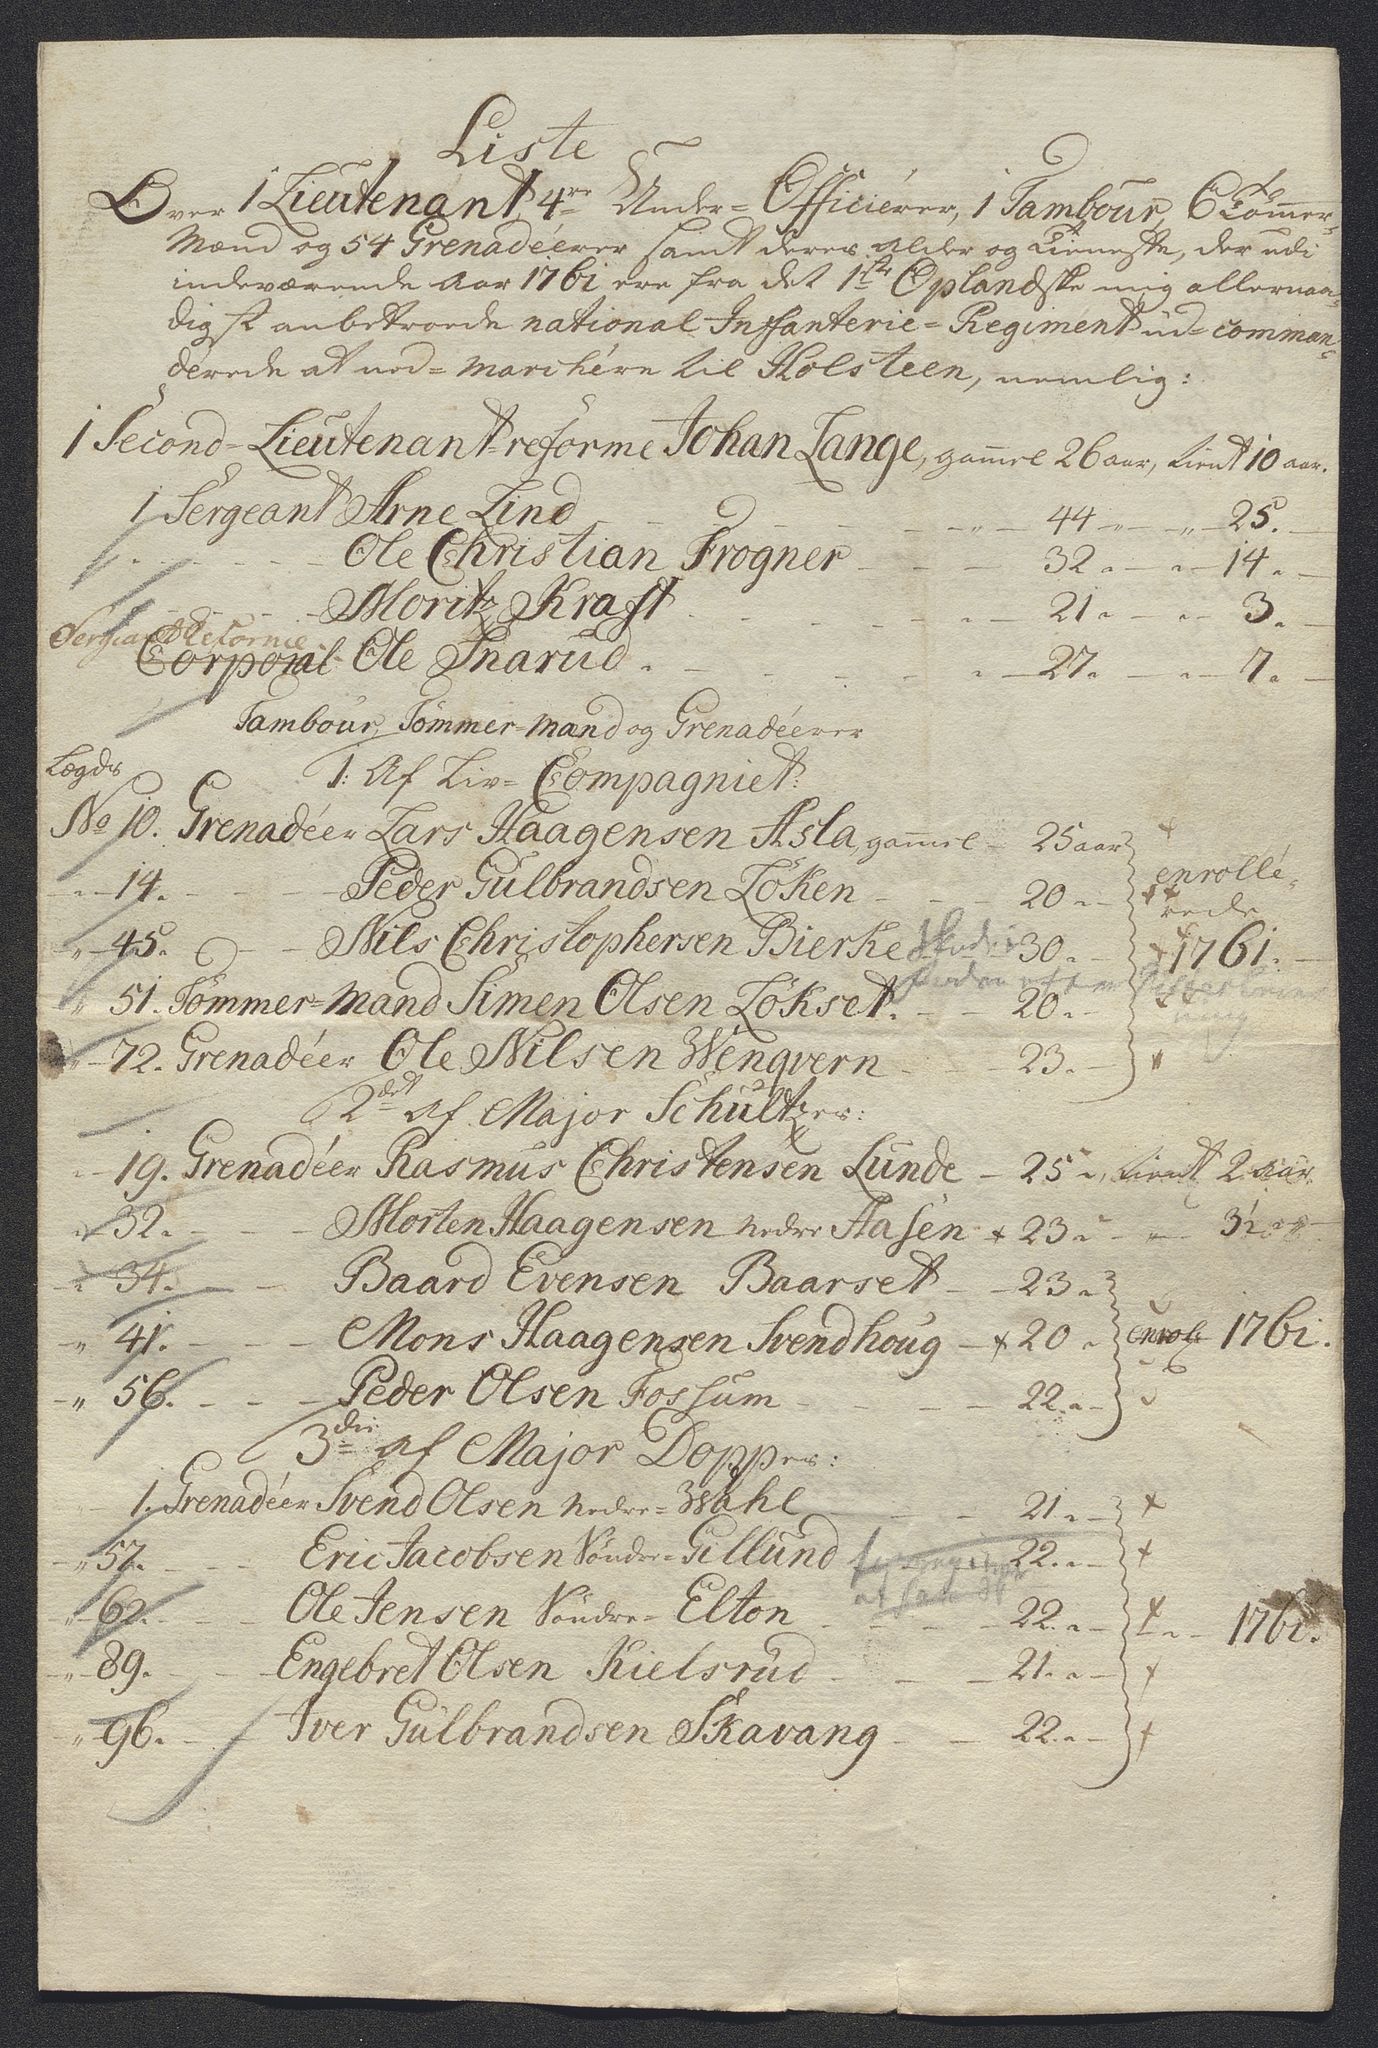 Liste
Over 1 Lieutenant, 4re Under=Officiérer, 1 Tambour, 6 Tömmer=
Mænd og 54 Grenadéerer samt deres alder og Tieneste, der udi
indeværende Aar 1761 ere fra det 1ste Oplandske mig allernaa=
digst anbetroede national Infanterie=Regiment ud=comman=
derede at ned=marchére til Holsteen, nemlig:
1 Second=Lieutenant=reforme Johan Lange, gammel 26 aar, tient 10 aar.
1 Sergeant Arne Lind - - - 44 " - " 25.
- - - Ole Christian Frogner - - - 32 " - " 14.
- - - Moritz Kraft - - - 21 " - " 3.
Sergiant Reformé
Corporal Ole Snarud - - - 27 " - " 7.
Tambour, Tömmer=mænd og Grenadéerer
Lægds 1: Af Liv=Compagniet:
No 10. Grenadéer Lars Haagensen Asla, gammel - 25 aar +
" 14. - - - Peder Gulbrandsen Löken - - - 20 " enrollé=
rede
" 45. - - - Nils Christophersen Bierke - 30 " + 1761.
" 51. Tömmer=mand Simen Olsen Lökset - - 20 "
" 72. Grenadéer Ole Nilsen Wengvern - - 23 "
2det af Major Schultzes:
" 19. Grenadéer Rasmus Christensen Lunde - 25 ", tient 2 aar.
" 32. - - - Morten Haagensen nedre Aasen + 23 " - " 3½ "
" 34. - - - Baard Evensen Baarset - - 23 "
" 41. - - - Mons Haagensen Svendhoug - + 20 " enrol: 1761.
" 56. - - - Peder Olsen Fossum - - - 22 "
3die af Major Doppes:
1. Grenadéer Svend Olsen nedre=Wahl - - 21 " +
" 57. - - - Eric Jacobsen Söndre=Gillund 22 " +
" 62. - - - Ole Jensen Söndre=Elton - - - 22 " + - 1761.
" 89. - - - Engebret Olsen Kielsrud - - - 21 " +
" 96. - - - Iver Gulbrandsen Skavang - - 22 " +